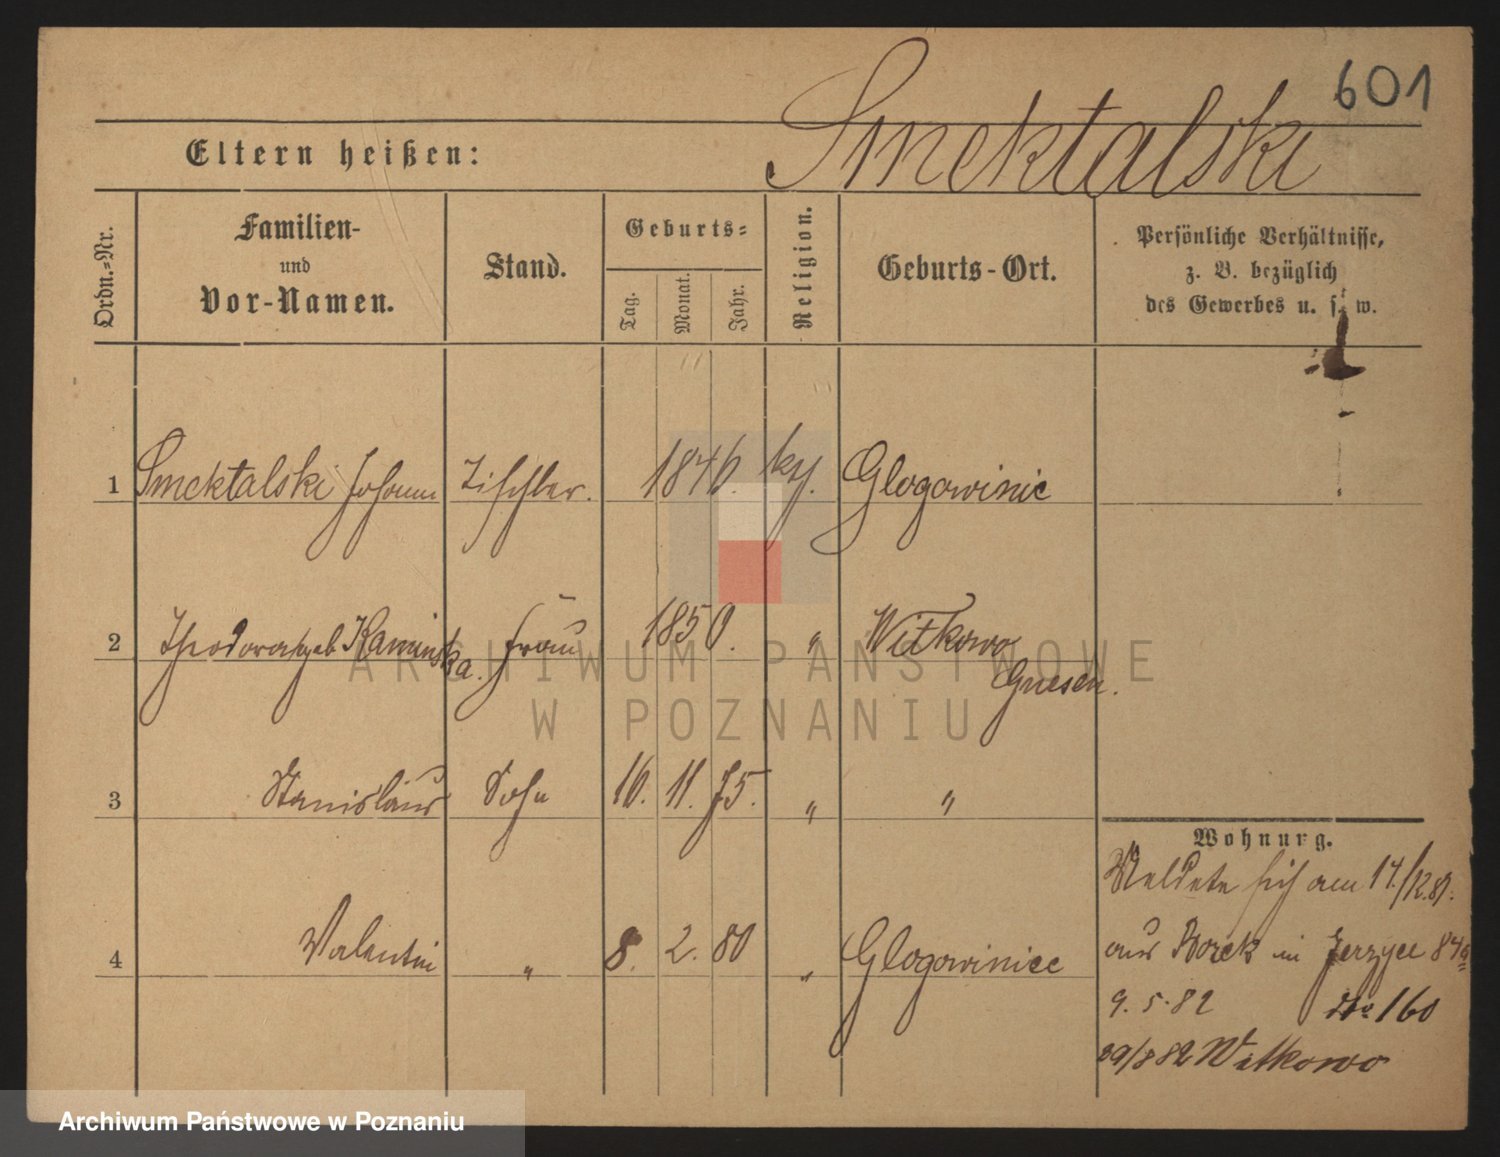 601
Smektalski
Eltern heißen:
Ordn.-Nr.
Familien-
und
Vor-Namen.
Stand.
Geburts-
Tag.
Monat.
Jahr.
Religion.
Geburts-Ort.
Persönliche Verhältnisse,
z. B. bezüglich
des Gewerbes u. s. w.
1 Smektalski Johann Tischler. 1846. kth. Glogowinic
2 Theodora geb Kaminska. Frau 1850. " Witkowo
Gnesen.
3 Stanislaus Sohn 16. 11. 75. " "
4 Valentin " 8. 2. 80 " Glogowiniec
Wohnung.
Meldete sich am 14./12.81.
aus Borek in Jerzyce 84a
9. 5. 82 do 160
29/8 82 Witkowo
ARCHIWUM PAŃSTWOWE
W POZNANIU
Archiwum Państwowe w Poznaniu